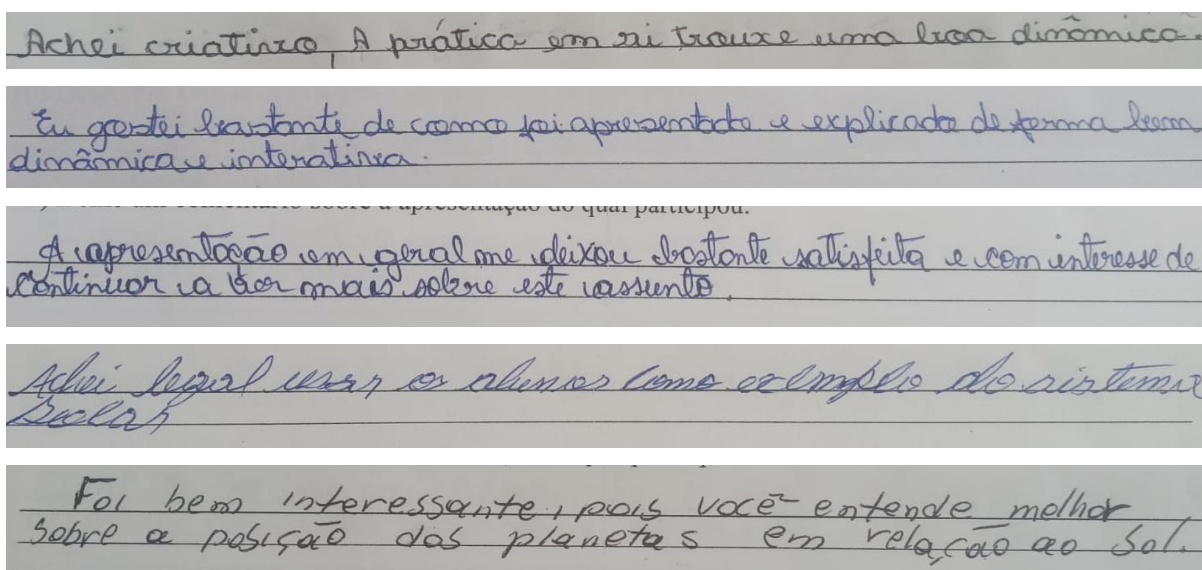 Achei criativo, A prática em si trouxe uma boa dinâmica.
Eu gostei bastante de como foi apresentado e explicado de forma bem
dinâmica e interativa.
um comentário sobre a apresentação do qual participou.
A apresentação em geral me deixou bastante satisfeita e com interesse de
continuar a ver mais sobre este assunto.
Achei legal usar os alunos como exemplo do sistema
Solar
Foi bem interessante, pois você entende melhor
sobre a posição dos planetas em relação ao Sol.